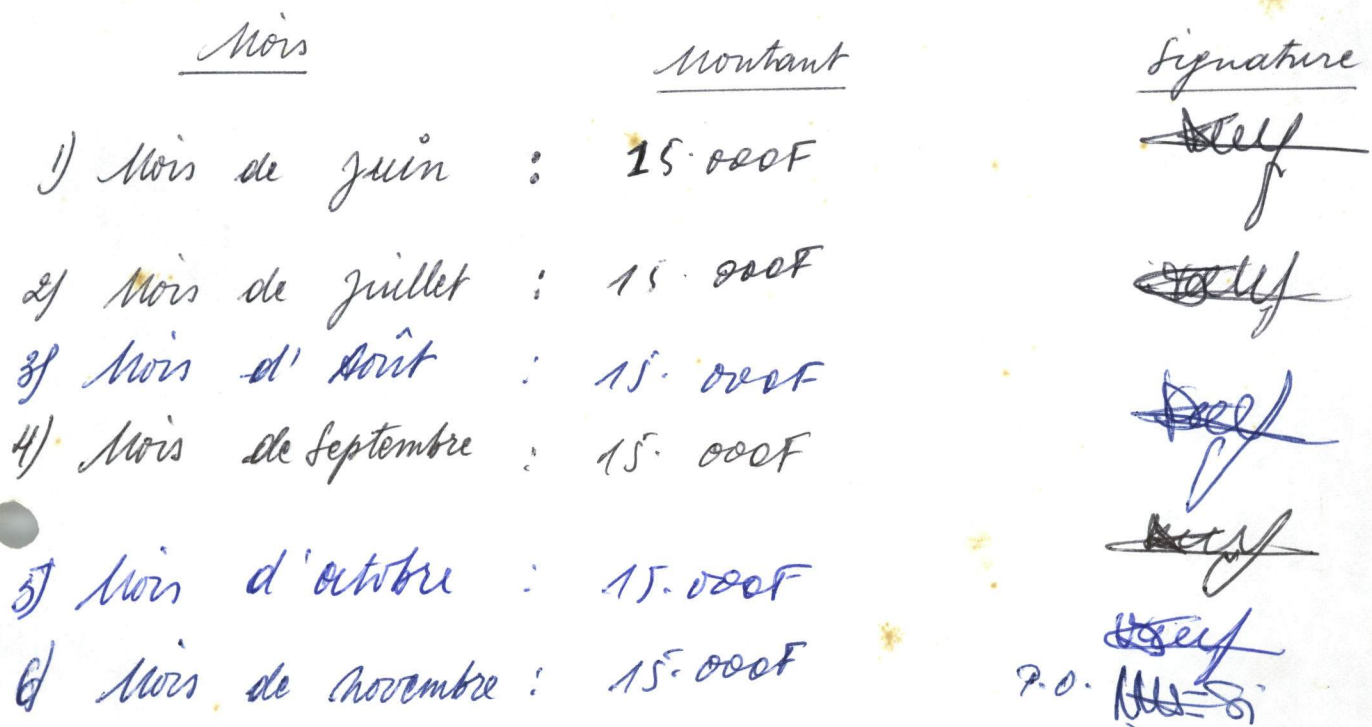 Mois Montant Signature
1) Mois de Juin : 15.000F
2) Mois de Juillet : 15.000F
3) Mois d'Août : 15.000F
4) Mois de Septembre : 15.000F
5) Mois d'octobre : 15.000F
6) Mois de novembre : 15.000F P.O.